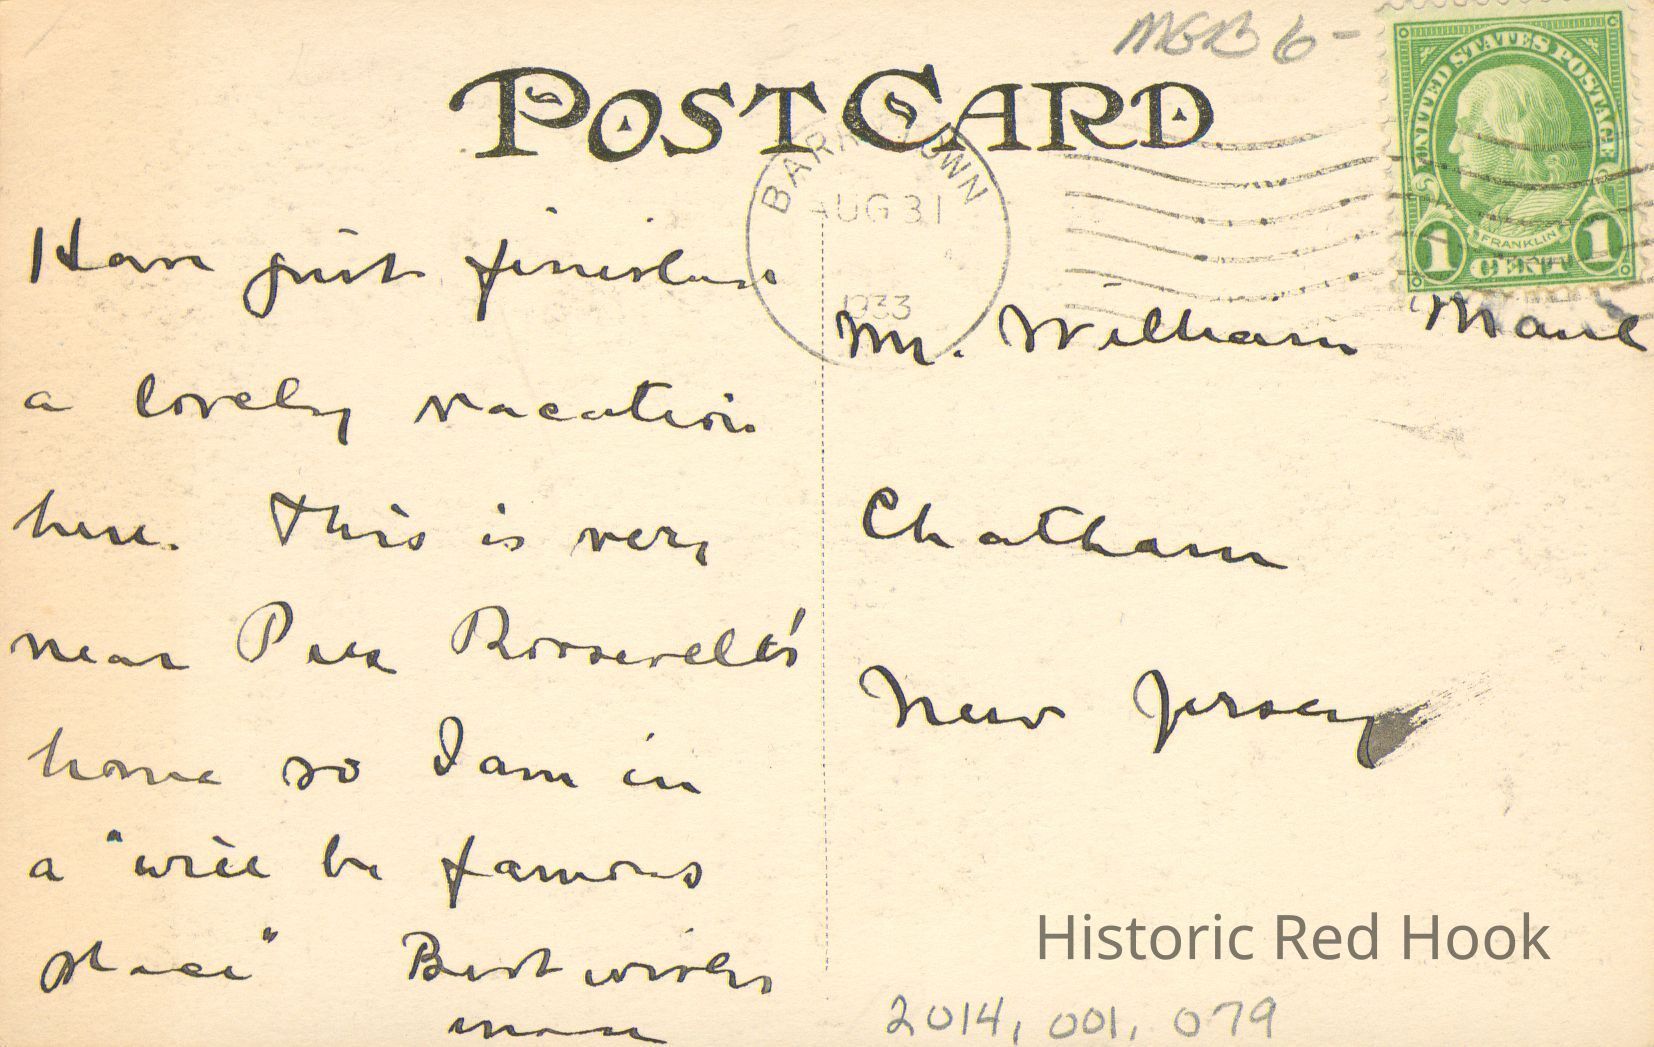 MGB 6-
POST CARD
BARRYTOWN
AUG 31
1933
UNITED STATES POSTAGE
FRANKLIN
1 CENT 1
Have just finished
a lovely vacation
here. This is very
near Pres Roosevelt's
home so I am in
a "will be famous
place" Best wishes
Mr. William Maul
Chatham
New Jersey
Historic Red Hook
2014, 001, 079